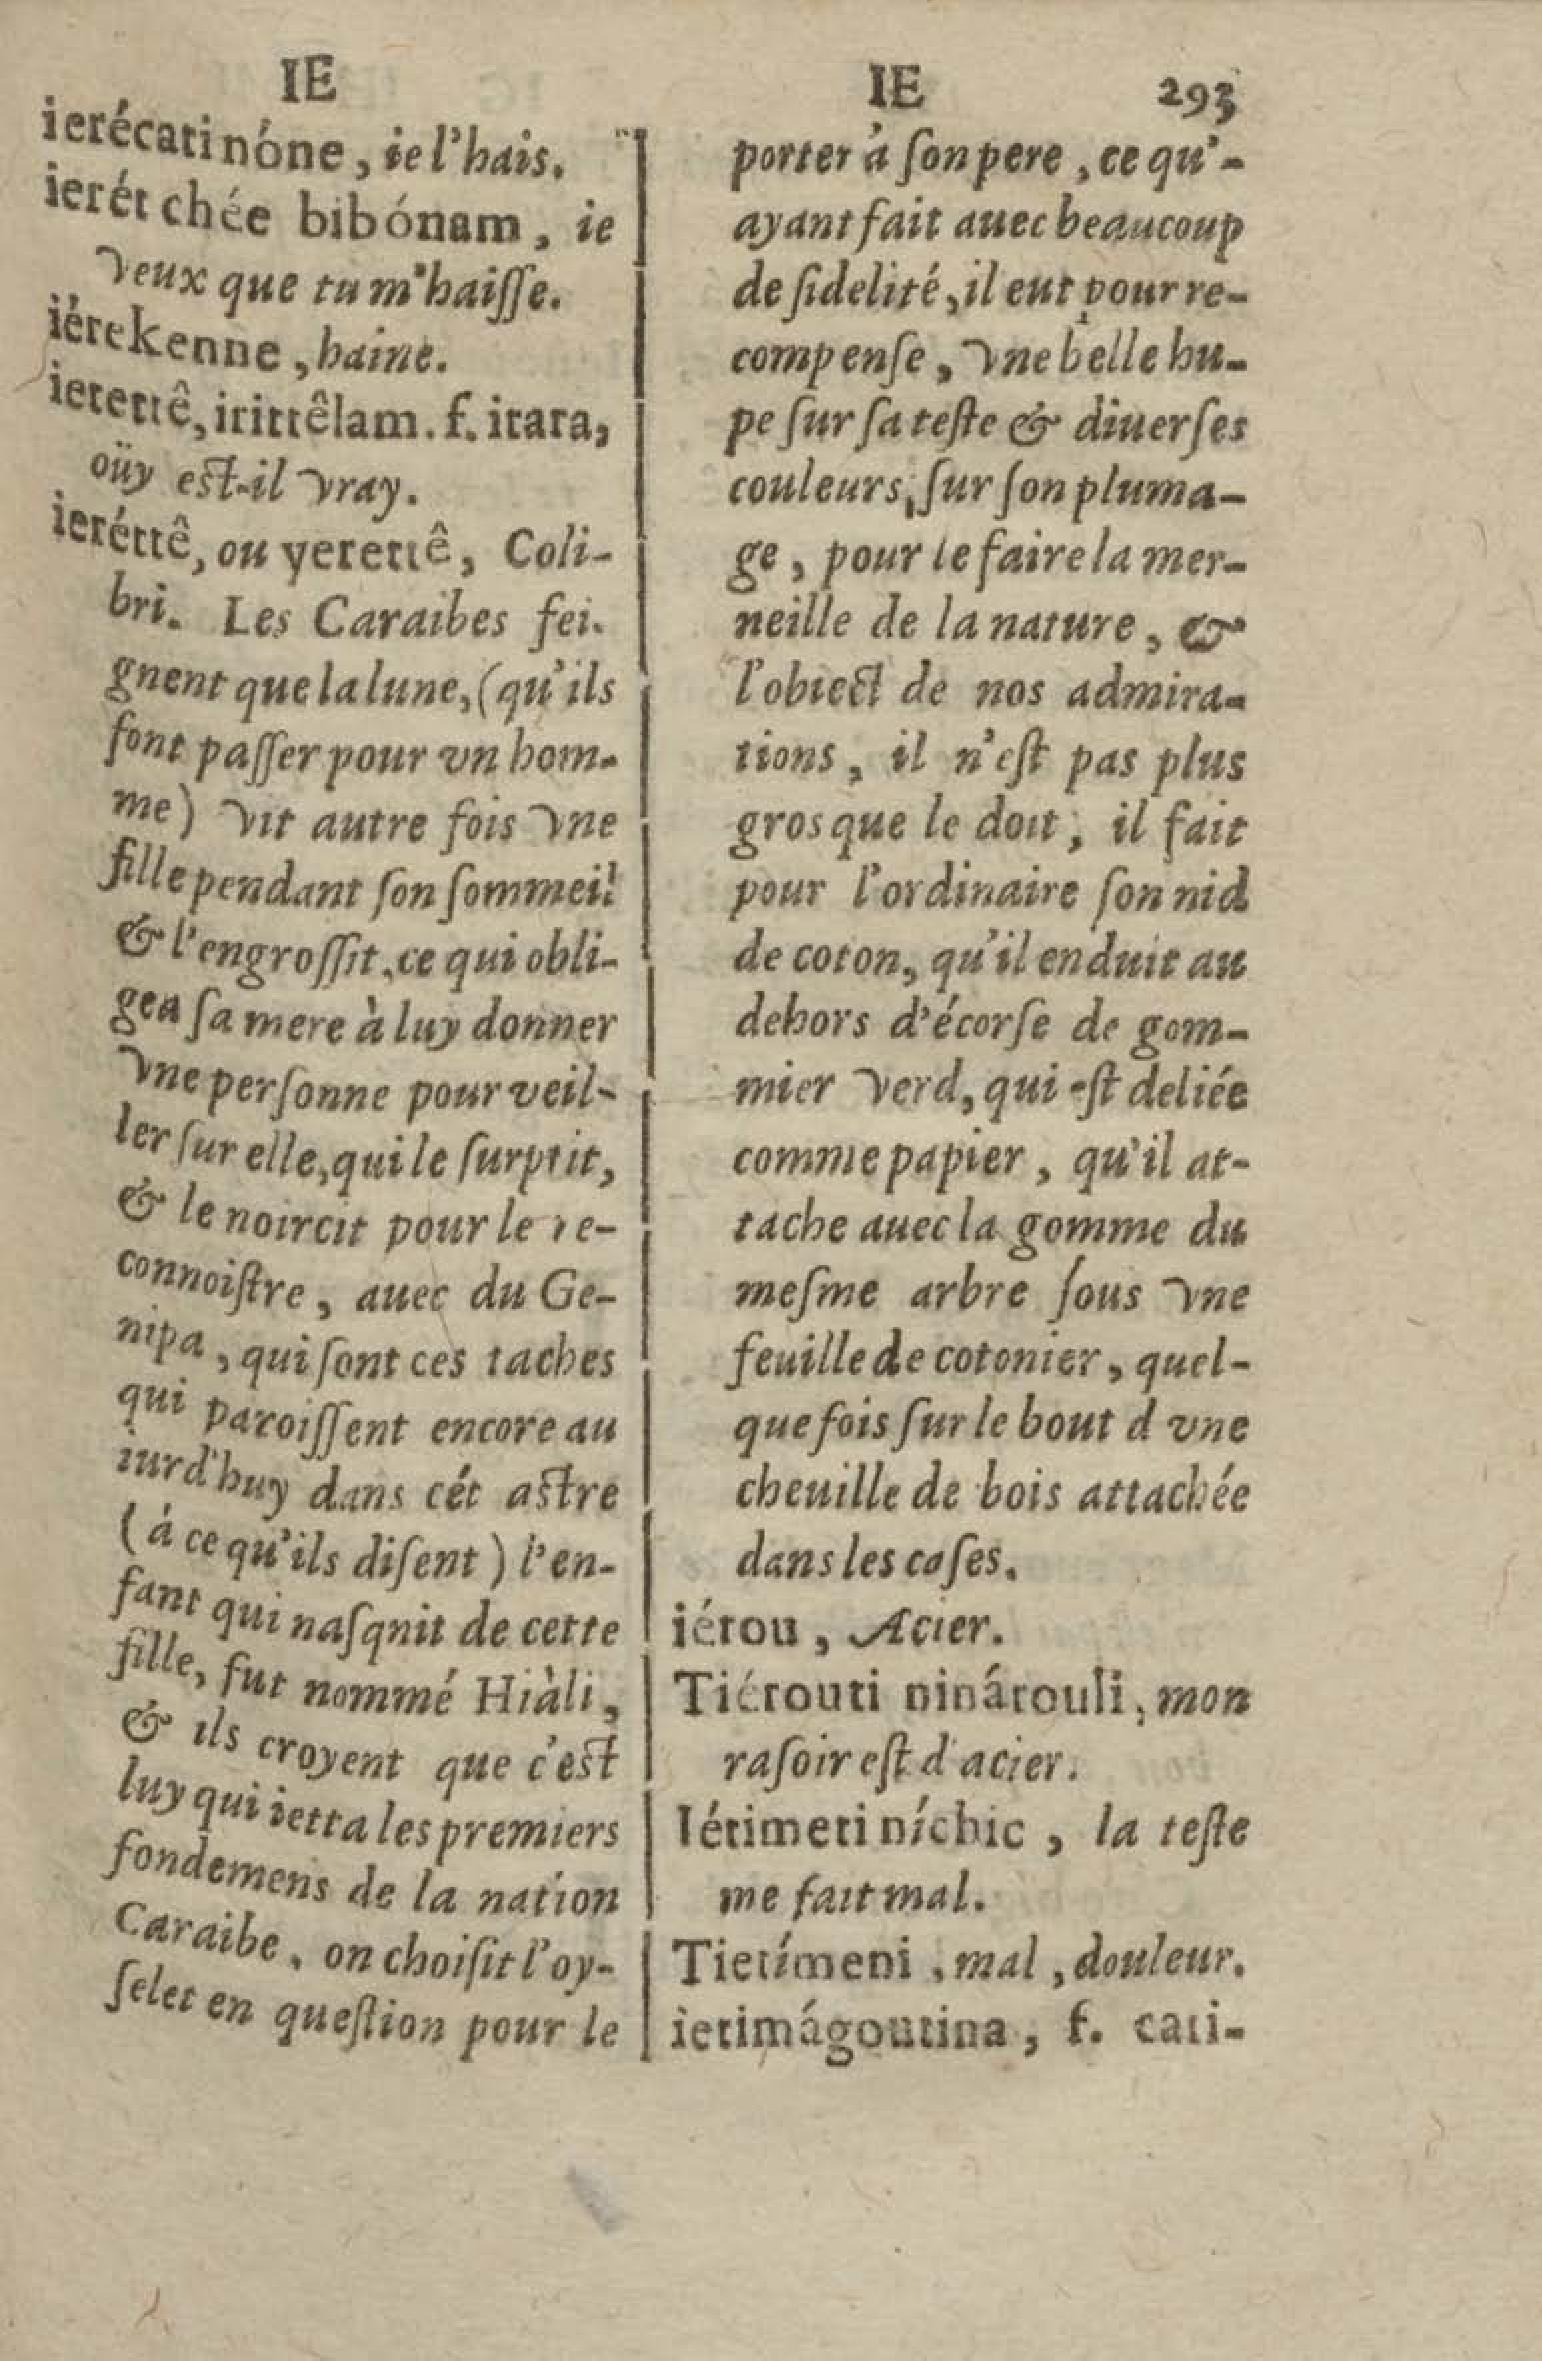 IE
ierécati nóne, ie l'hais.
ierét chée bibónam, ie
veux que tu m'haiſſe.
iérekenne, haine.
ieterrê, irittêlam. f. itara,
oüy est-il vray.
ieréttê, ou yerettê, Coli-
bri. Les Caraibes fei-
gnent que la lune, (qu'ils
font paſſer pour vn hom-
me) vit autre fois vne
fille pendant ſon ſommeil
& l'engroſſit, ce qui obli-
gea ſa mere à luy donner
vne perſonne pour veil-
ler ſur elle, qui le ſurprit,
& le noircit pour le re-
connoiſtre, auec du Ge-
nipa, qui ſont ces taches
qui paroiſſent encore au
iurd'huy dans cét astre
(á ce qu'ils diſent) l'en-
fant qui naſqnit de cette
fille, fut nommé Hiàli,
& ils croyent que c'est
luy qui ietta les premiers
fondemens de la nation
Caraibe, on choiſit l'oy-
ſelet en queſtion pour le
IE 293
porter à ſon pere, ce qu'-
ayant fait auec beaucoup
de fidelité, il eut pour re-
compenſe, vne belle hu-
pe ſur ſa teſte & diuerſes
couleurs, ſur ſon pluma-
ge, pour le faire la mer-
neille de la nature, &
l'obiect de nos admira-
tions, il n'eſt pas plus
gros que le doit, il fait
pour l'ordinaire ſon nid
de coton, qu'il enduit au
dehors d'écorſe de gom-
mier verd, qui eſt deliée
comme papier, qu'il at-
tache auec la gomme du
meſme arbre ſous vne
feuille de cotonier, quel-
que fois ſur le bout d vne
cheuille de bois attachée
dans les caſes.
iérou, Acier.
Tiérouti ninárouli, mon
raſoir eſt d'acier.
Iétimeti níchic, la teſte
me fait mal.
Tietímeni, mal, douleur.
ietimágoutina, f. cati-